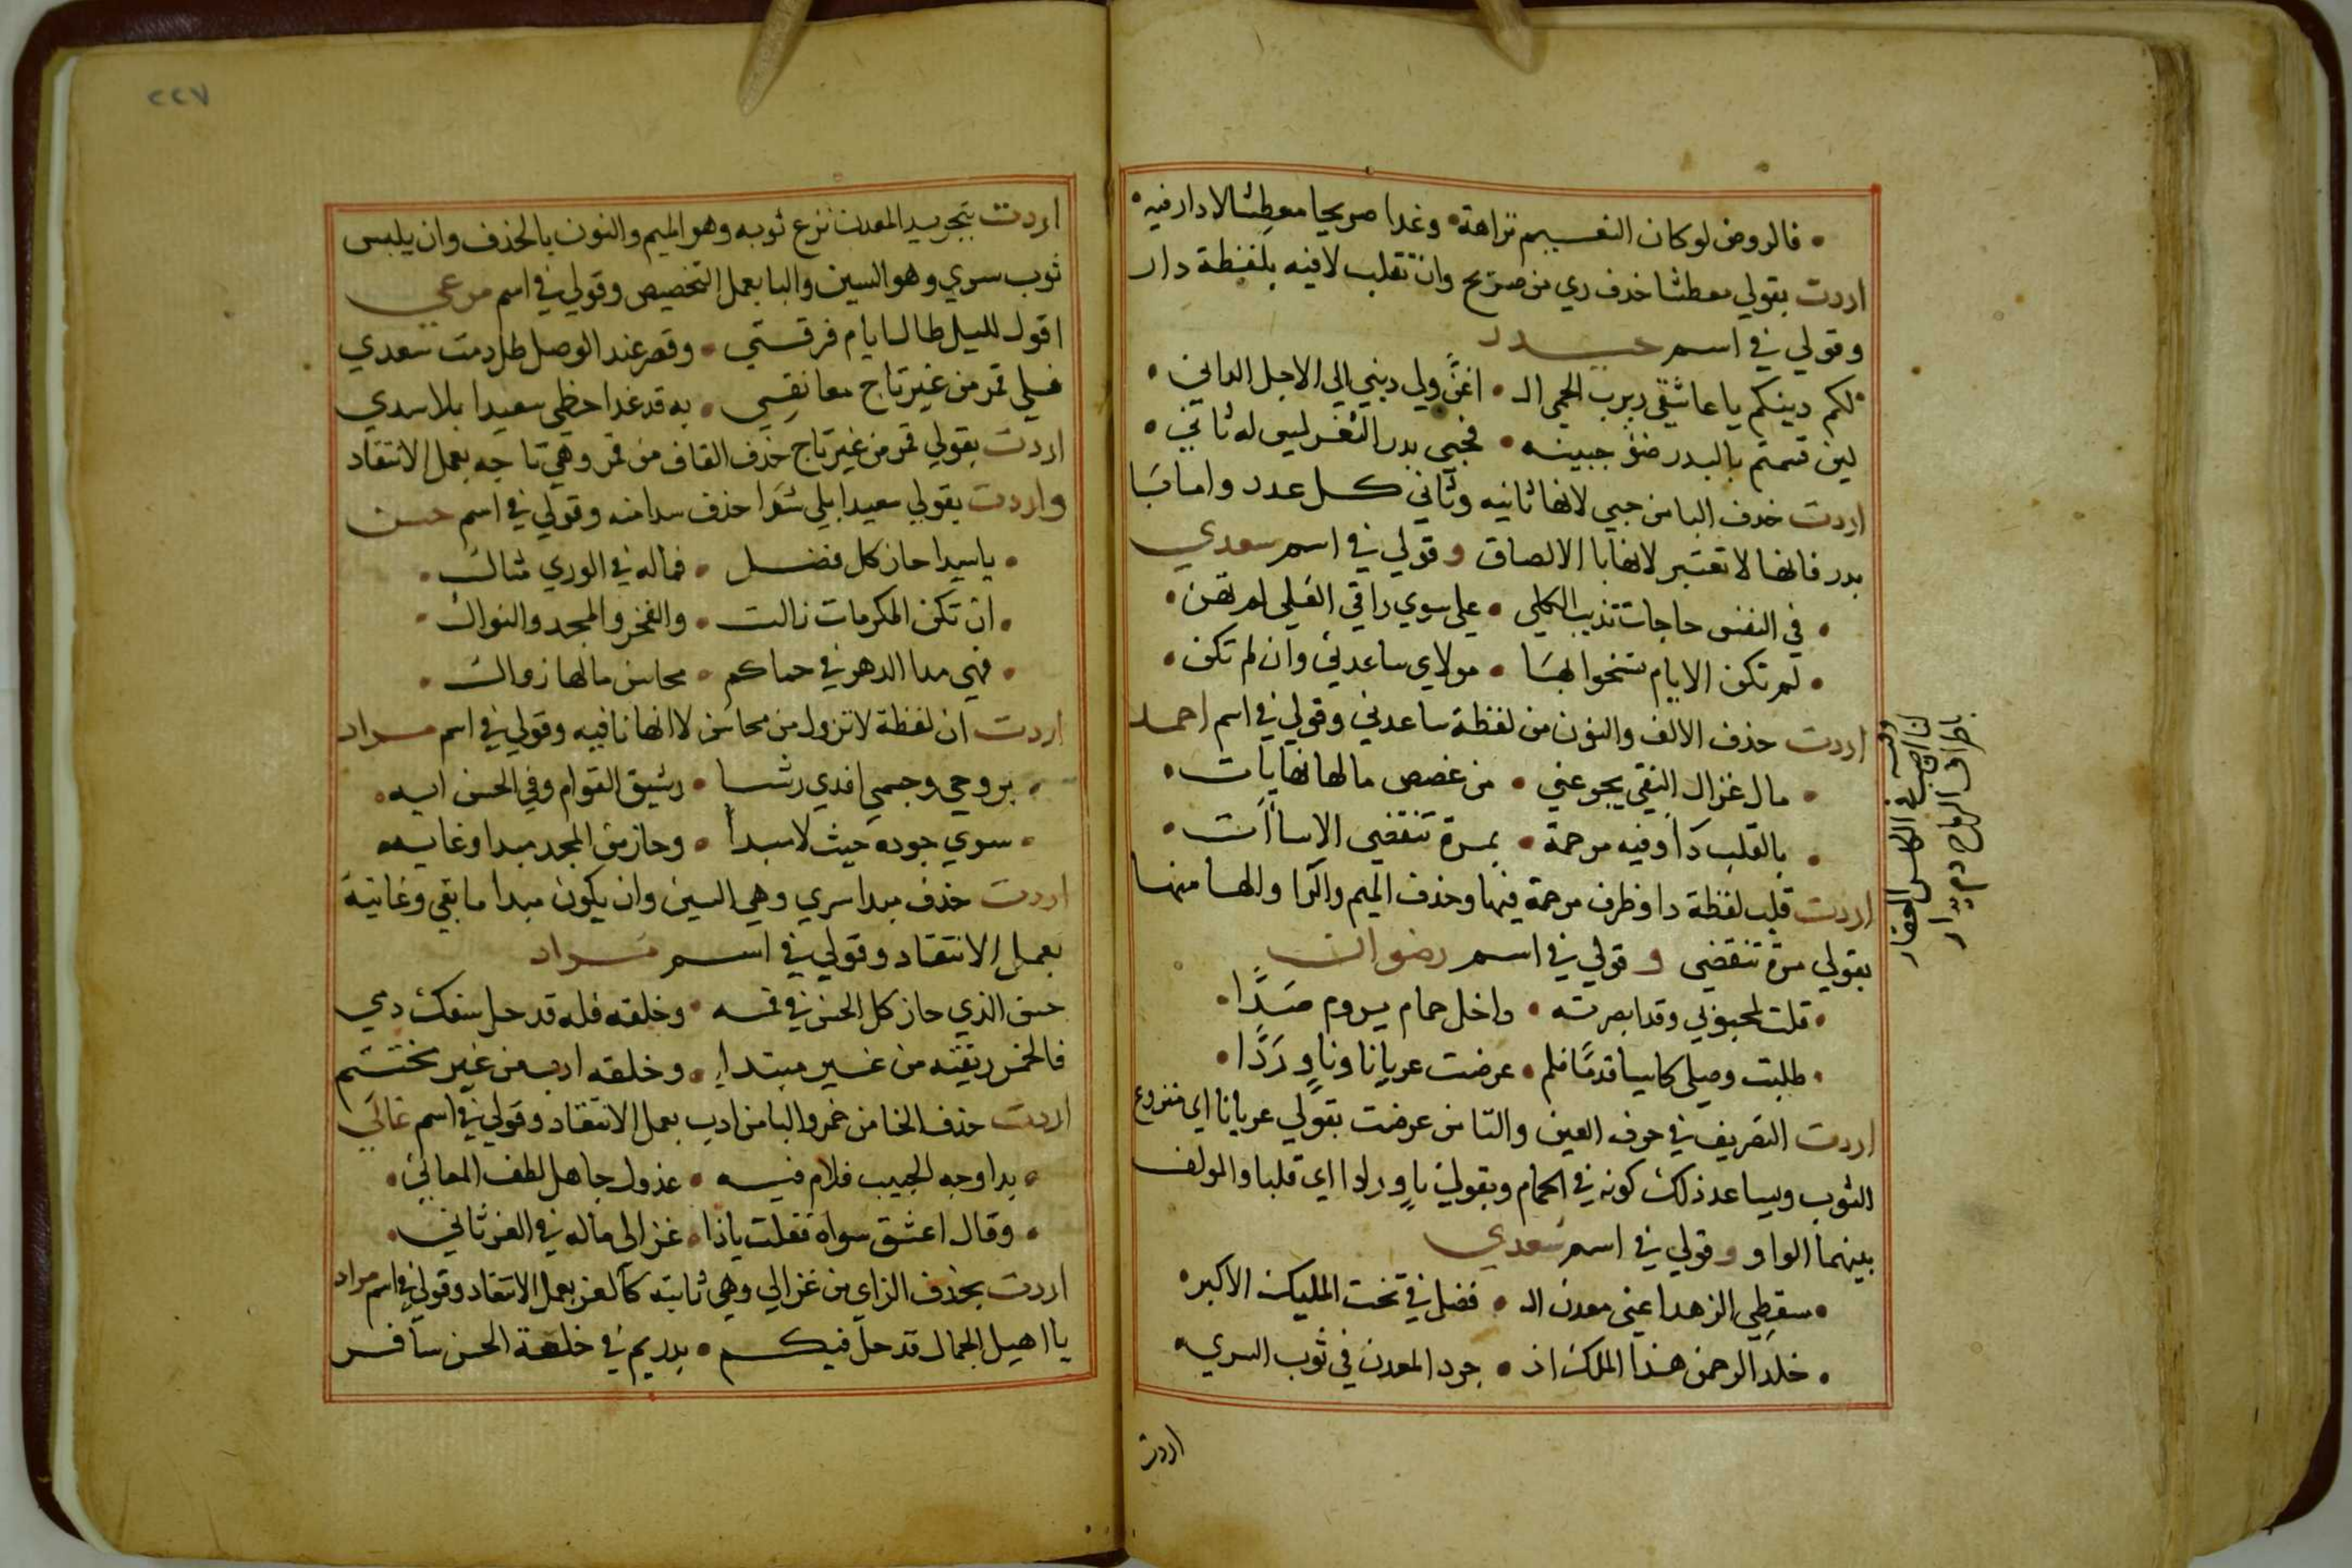 فالروض لو كان النسيم نزاهة • وغدا صريحا معطشا لا دار فيه
اردت بقولي معطشا حذف ري من صريح وان تقلب لا فيه بلفظة دار
وقولي في اسم
لكم دينكم يا عاشقي ربرب الحمى الـ • اغن ولي ديني الى الاجل الداني
لين قستم بالبدر ضؤ جبينه • فحبي بدر الثغر ليس له ثاني
اردت حذف البا من حبي لانها ثانيه وثاني كل عدد واما با
بدر فانها لا تعتبر لانها با الالصاق وقولي في اسم سعدي
في النفس حاجات تذيب الكلى • على سوي راقي العلى لم تهن
لم تكن الايام تسخوا بها • مولاي ساعدني وان لم تكن
اردت حذف الالف والنون من لفظة ساعدني وقولي في اسم احمد
مال غزال النقى يجرعني • من غصص مالها نهايات
بالقلب دا وفيه مرحمة • بمرة تنقضي الاساات
اردت قلب لفظة دا وظرف مرحمة فيها وحذف الميم والرا والها منها
بقولي مرة تنقضي وقولي في اسم رضوان
قلت لمحبوبي وقد ابصرته • داخل حمام يروم صدا
طلبت وصلي كاسيا قدما فلم • عرضت عريانا وناو ردا
اردت التصريف في حرف العين والتا من عرضت بقولي عريانا اي منزوع
الثوب ويساعد ذلك كونه في الحمام وبقولي ناو ردا اي قلبا والمولف
بينهما الواو وقولي في اسم سعدي
سقطي الزهد اعني معدن الـ • فضل في تخت المليك الاكبر
خلد الرحمن هذا الملك اذ • جرد المعدن في ثوب السري
اردت
باطراف الرماح
٢٢٧
اردت بتجريد المعدن نزع ثوبه وهو الميم والنون بالحذف وان يلبس
ثوب سري وهو السين واليا بعمل التخصيص وقولي في اسم مرعي
اقول لليل طال ايام فرقتي • وقصر عند الوصل طل دمت سعدي
فيلي قمر من غير تاج معانقي • به قد غدا حظي سعيدا بلا سدي
اردت بقولي قمر من غير تاج حذف القاف من قمر وهي تاجه بعمل الانتقاد
واردت بقولي سعيدا بلى حذف سدا منه وقولي في اسم حسن
يا سيدا حاز كل فضل • فماله في الورى مثال
ان تكن المكرمات زالت • والفخر والمجد والنوال
فهي مدا الدهر في حماكم • محاسن مالها زوال
اردت ان لفظة لا تزول من محاسن لا انها نافيه وقولي في اسم مراد
بروحي وجسمي افدي رشا • رشيق القوام وفي الحسن ايه
سوي جوده حيث لا مبدا • وحاز من المجد مبدا وغايه
اردت حذف مبدا سري وهي السين وان يكون مبدا ما بقي وغايته
بعمل الانتقاد وقولي في اسم مراد
حتى الذي حاز كل الحسن في فمه • وخلقه فله قد حل سفك دمي
فالخمر ريقته من غير مبتدا • وخلقه ادب من غير مختتم
اردت حذف الخا من خمر والبا من ادب بعمل الانتقاد وقولي في اسم غالي
بدا وجه الحبيب فلام فيه • عذول جاهل لطف المعاني
وقال اعشق سواه فقلت ياذا • غزالي ماله في العز ثاني
اردت بحذف الزاي من غزالي وهي ثانيته كالعز بعمل الانتقاد وقولي في اسم مراد
يا اهيل الجمال قد حل فيكم • بدر تم في خلعة الحسن سافر